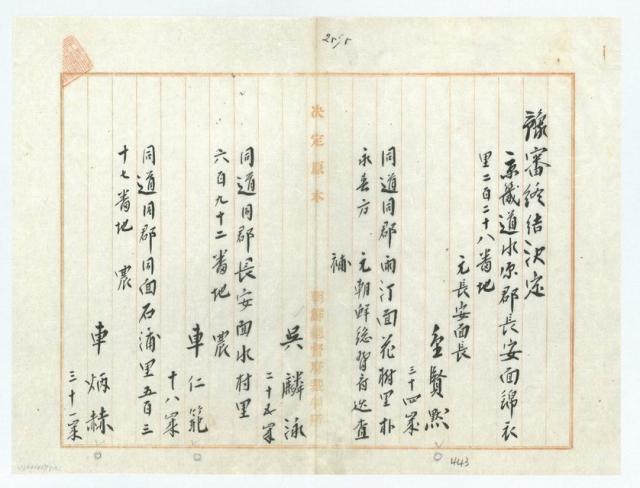 豫審終結決定
京畿道水原郡長安面錦衣
里二百二十八番地
元長安面長
金賢熙
三十四歲
同道同郡雨汀面花樹里朴
永吾方 元朝鮮総督府巡査
補
吳麟泳
二十五歲
決定原本
朝鮮總督府裁判所
同道同郡長安面水村里
六百九十二番地 農
車仁範
十八歲
同道同郡同面石浦里五百三
十七番地 農
車炳赫
三十一歲
443